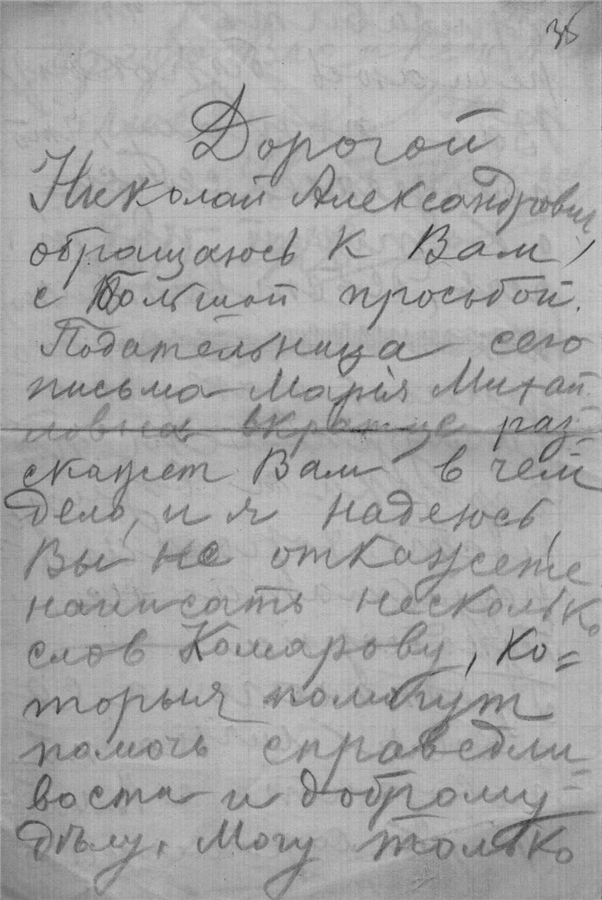 36
Дорогой
Николай Александрович
обращаюсь к Вам,
с большой просьбой.
Подательница сего
письма Марія Михай-
ловна вкратце раз-
скажет Вам в чем
дело, и я надеюсь,
Вы не откажете
написать несколько
слов Комарову, ко=
торыя помогут
помочь справедли-
вости и доброму
дѣлу. Могу только